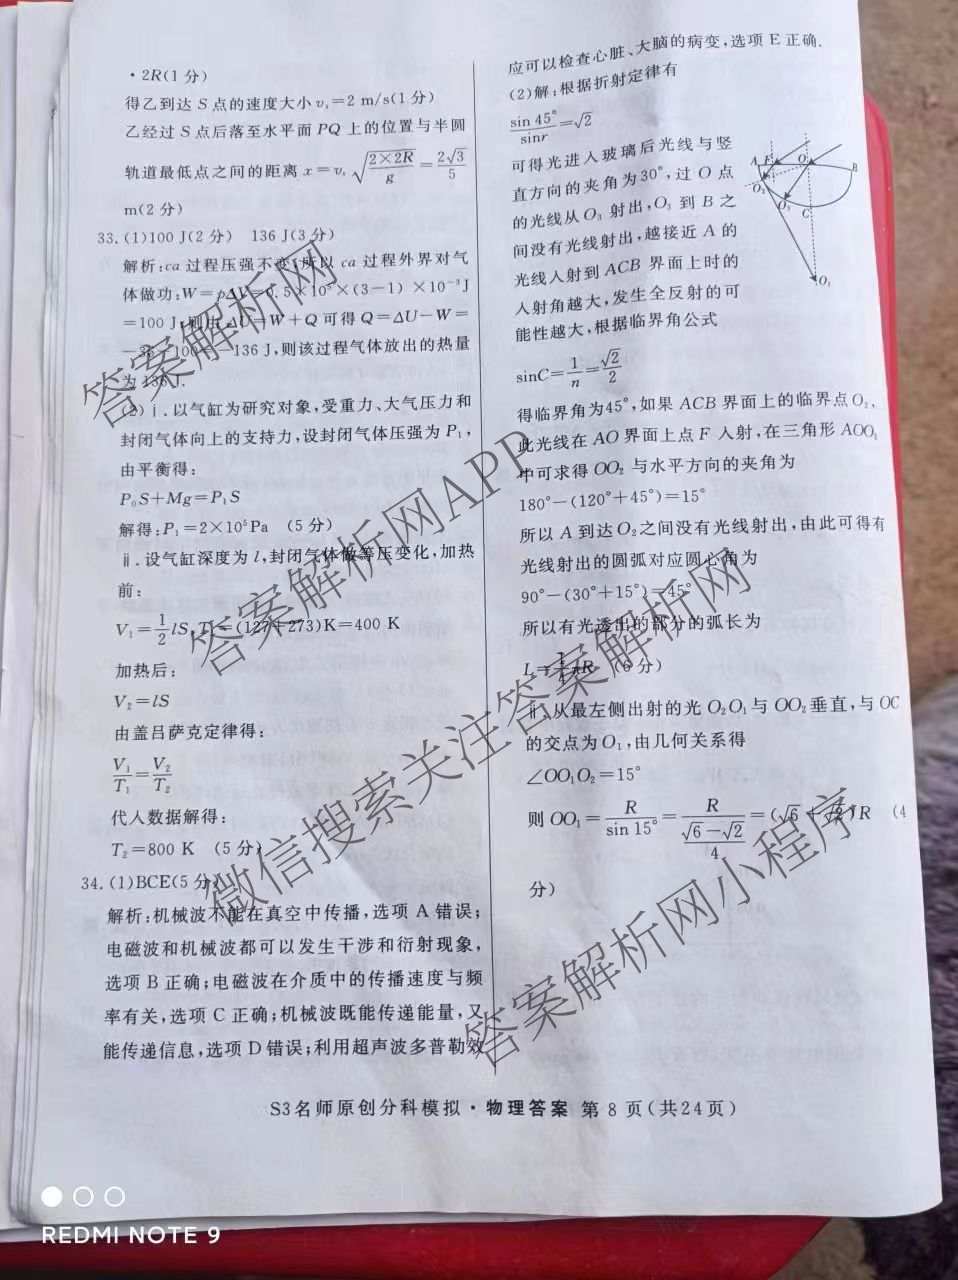 ·2R(1分)
得乙到达S点的速度大小vₛ=2 m/s(1分)
乙经过S点后落至水平面PQ上的位置与半圆
轨道最低点之间的距离x=vₛ√(2×2R/g)=2√3/5
m(2分)
33.(1)100 J(2分) 136 J(3分)
解析:ca过程压强不变,所以ca过程外界对气
体做功:W=pΔV=0.5×10⁵×(3-1)×10⁻³J
=100 J,则由ΔU=W+Q可得Q=ΔU-W=
136 J,则该过程气体放出的热量
为136J.
(2)ⅰ.以气缸为研究对象,受重力、大气压力和
封闭气体向上的支持力,设封闭气体压强为P₁,
由平衡得:
P₀S+Mg=P₁S
解得:P₁=2×10⁵Pa (5分)
ⅱ.设气缸深度为l,封闭气体做等压变化,加热
前:
V₁=1/2 lS,T₁=(127+273)K=400 K
加热后:
V₂=lS
由盖吕萨克定律得:
V₁/T₁=V₂/T₂
代入数据解得:
T₂=800 K (5分)
34.(1)BCE(5分)
解析:机械波不能在真空中传播,选项A错误;
电磁波和机械波都可以发生干涉和衍射现象,
选项B正确;电磁波在介质中的传播速度与频
率有关,选项C正确;机械波既能传递能量,又
能传递信息,选项D错误;利用超声波多普勒效
应可以检查心脏、大脑的病变,选项E正确.
(2)解:根据折射定律有
sin 45°/sinr=√2
可得光进入玻璃后光线与竖
直方向的夹角为30°,过O点
的光线从O₃射出,O₃到B之
间没有光线射出,越接近A的
光线入射到ACB界面上时的
入射角越大,发生全反射的可
能性越大,根据临界角公式
sinC=1/n=√2/2
得临界角为45°,如果ACB界面上的临界点O₂,
此光线在AO界面上点F入射,在三角形AOO₁
中可求得OO₂与水平方向的夹角为
180°-(120°+45°)=15°
所以A到达O₂之间没有光线射出,由此可得有
光线射出的圆弧对应圆心角为
90°-(30°+15°)=45°
所以有光透出的部分的弧长为
L=1/4 πR (6分)
ⅱ.从最左侧出射的光O₂O₁与OO₂垂直,与OC
的交点为O₁,由几何关系得
∠OO₁O₂=15°
则OO₁=R/sin 15°=R/((√6-√2)/4)=(√6+√2)R (4
分)
A F O B
O₂ O₃ C
O₁
S3名师原创分科模拟·物理答案 第8页(共24页)
答案解析网
答案解析网APP
微信搜索关注答案解析网
答案解析网小程序
REDMI NOTE 9